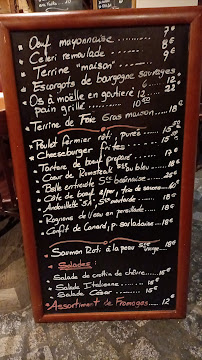 Oeuf mayonnaise 7€
Celeri remoulade 8€
Terrine "maison" 9€
Escargots de bourgogne Sauvages
6 12
Os à moëlle en gouttière 12 22
pain grillé 10€50
Terrine de Foie Gras maison 18€
Poulet fermier rôti, purée 15€50
Cheeseburger frites 15€50
Tartare de bœuf préparé 17€
Cœur de Rumsteak Sce au bleu 18€
Belle entrecôte Sce béarnaise 25€
Côte de bœuf
Andouillette 5A, Sce moutarde
Rognons de Veau en persillade 18€
Confit de Canard, p. sarladaises
Saumon Rôti à la peau Sce Vierge 18€
Salades :
Salade de crottin de chèvre 15€
Salade Italienne 15€
Salade César 16€
Assortiment de Fromages 12€